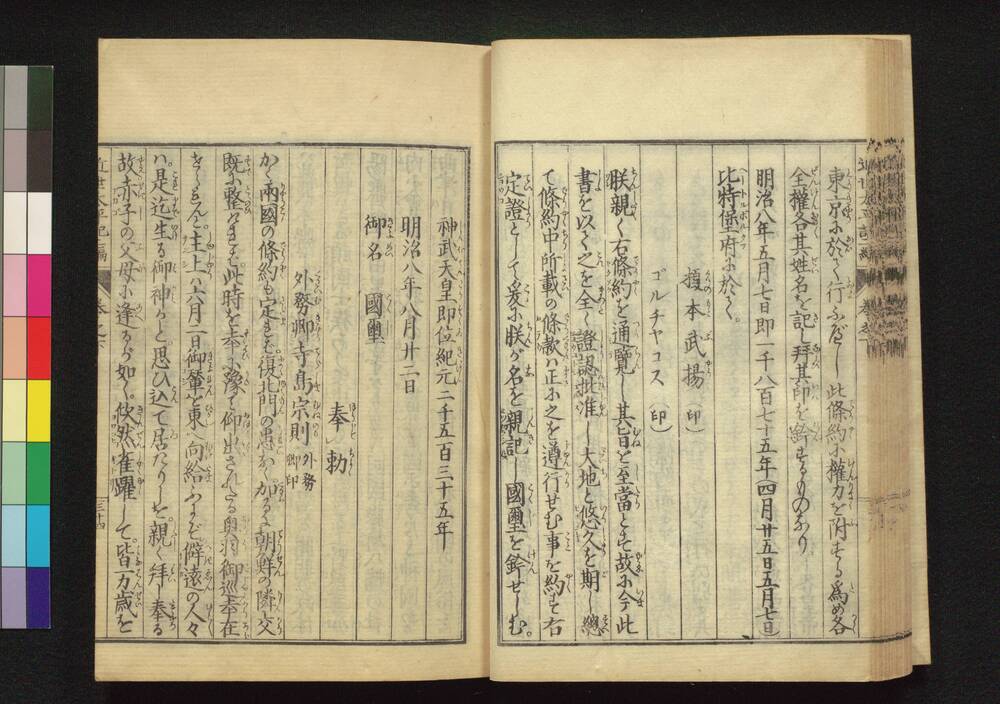 東京に於て行ふ屋し此條約に權力を附する爲め各
全權各其姓名を記し拜其印を鈐するものなり
明治八年五月七日即一千八百七十五年(四月廿五日五月七日)
比特堡府に於て
榎本武揚(印)
ゴルチヤコス(印)
朕親く右條約を通覽し其旨を至當とす故に今此
書を以て之を全く證認批准し大地と悠久を期し總
て條約中所載の條款ハ正に之を遵行せむ事を約す右
定證として爰に朕が名を親記し國璽を鈐せしむ。
神武天皇即位紀元二千五百三十五年
明治八年八月廿二日
御名 國璽
奉勅
外務卿寺島宗則 外務卿印
かく兩國の條約も定まり。復北門の患なけれバ。朝鮮の隣交
既に整けるまで。此時を
きらんと。主上ハ六月二日御輦を東へ向給ふまで僻遠の人々
ハ。是迄生る御神かと思ひ込て居たりしを親く拜し奉る
故赤子の父母に逢るが如く。忻然雀躍して。皆万歳を
近世太平記二編 卷之下 三十四